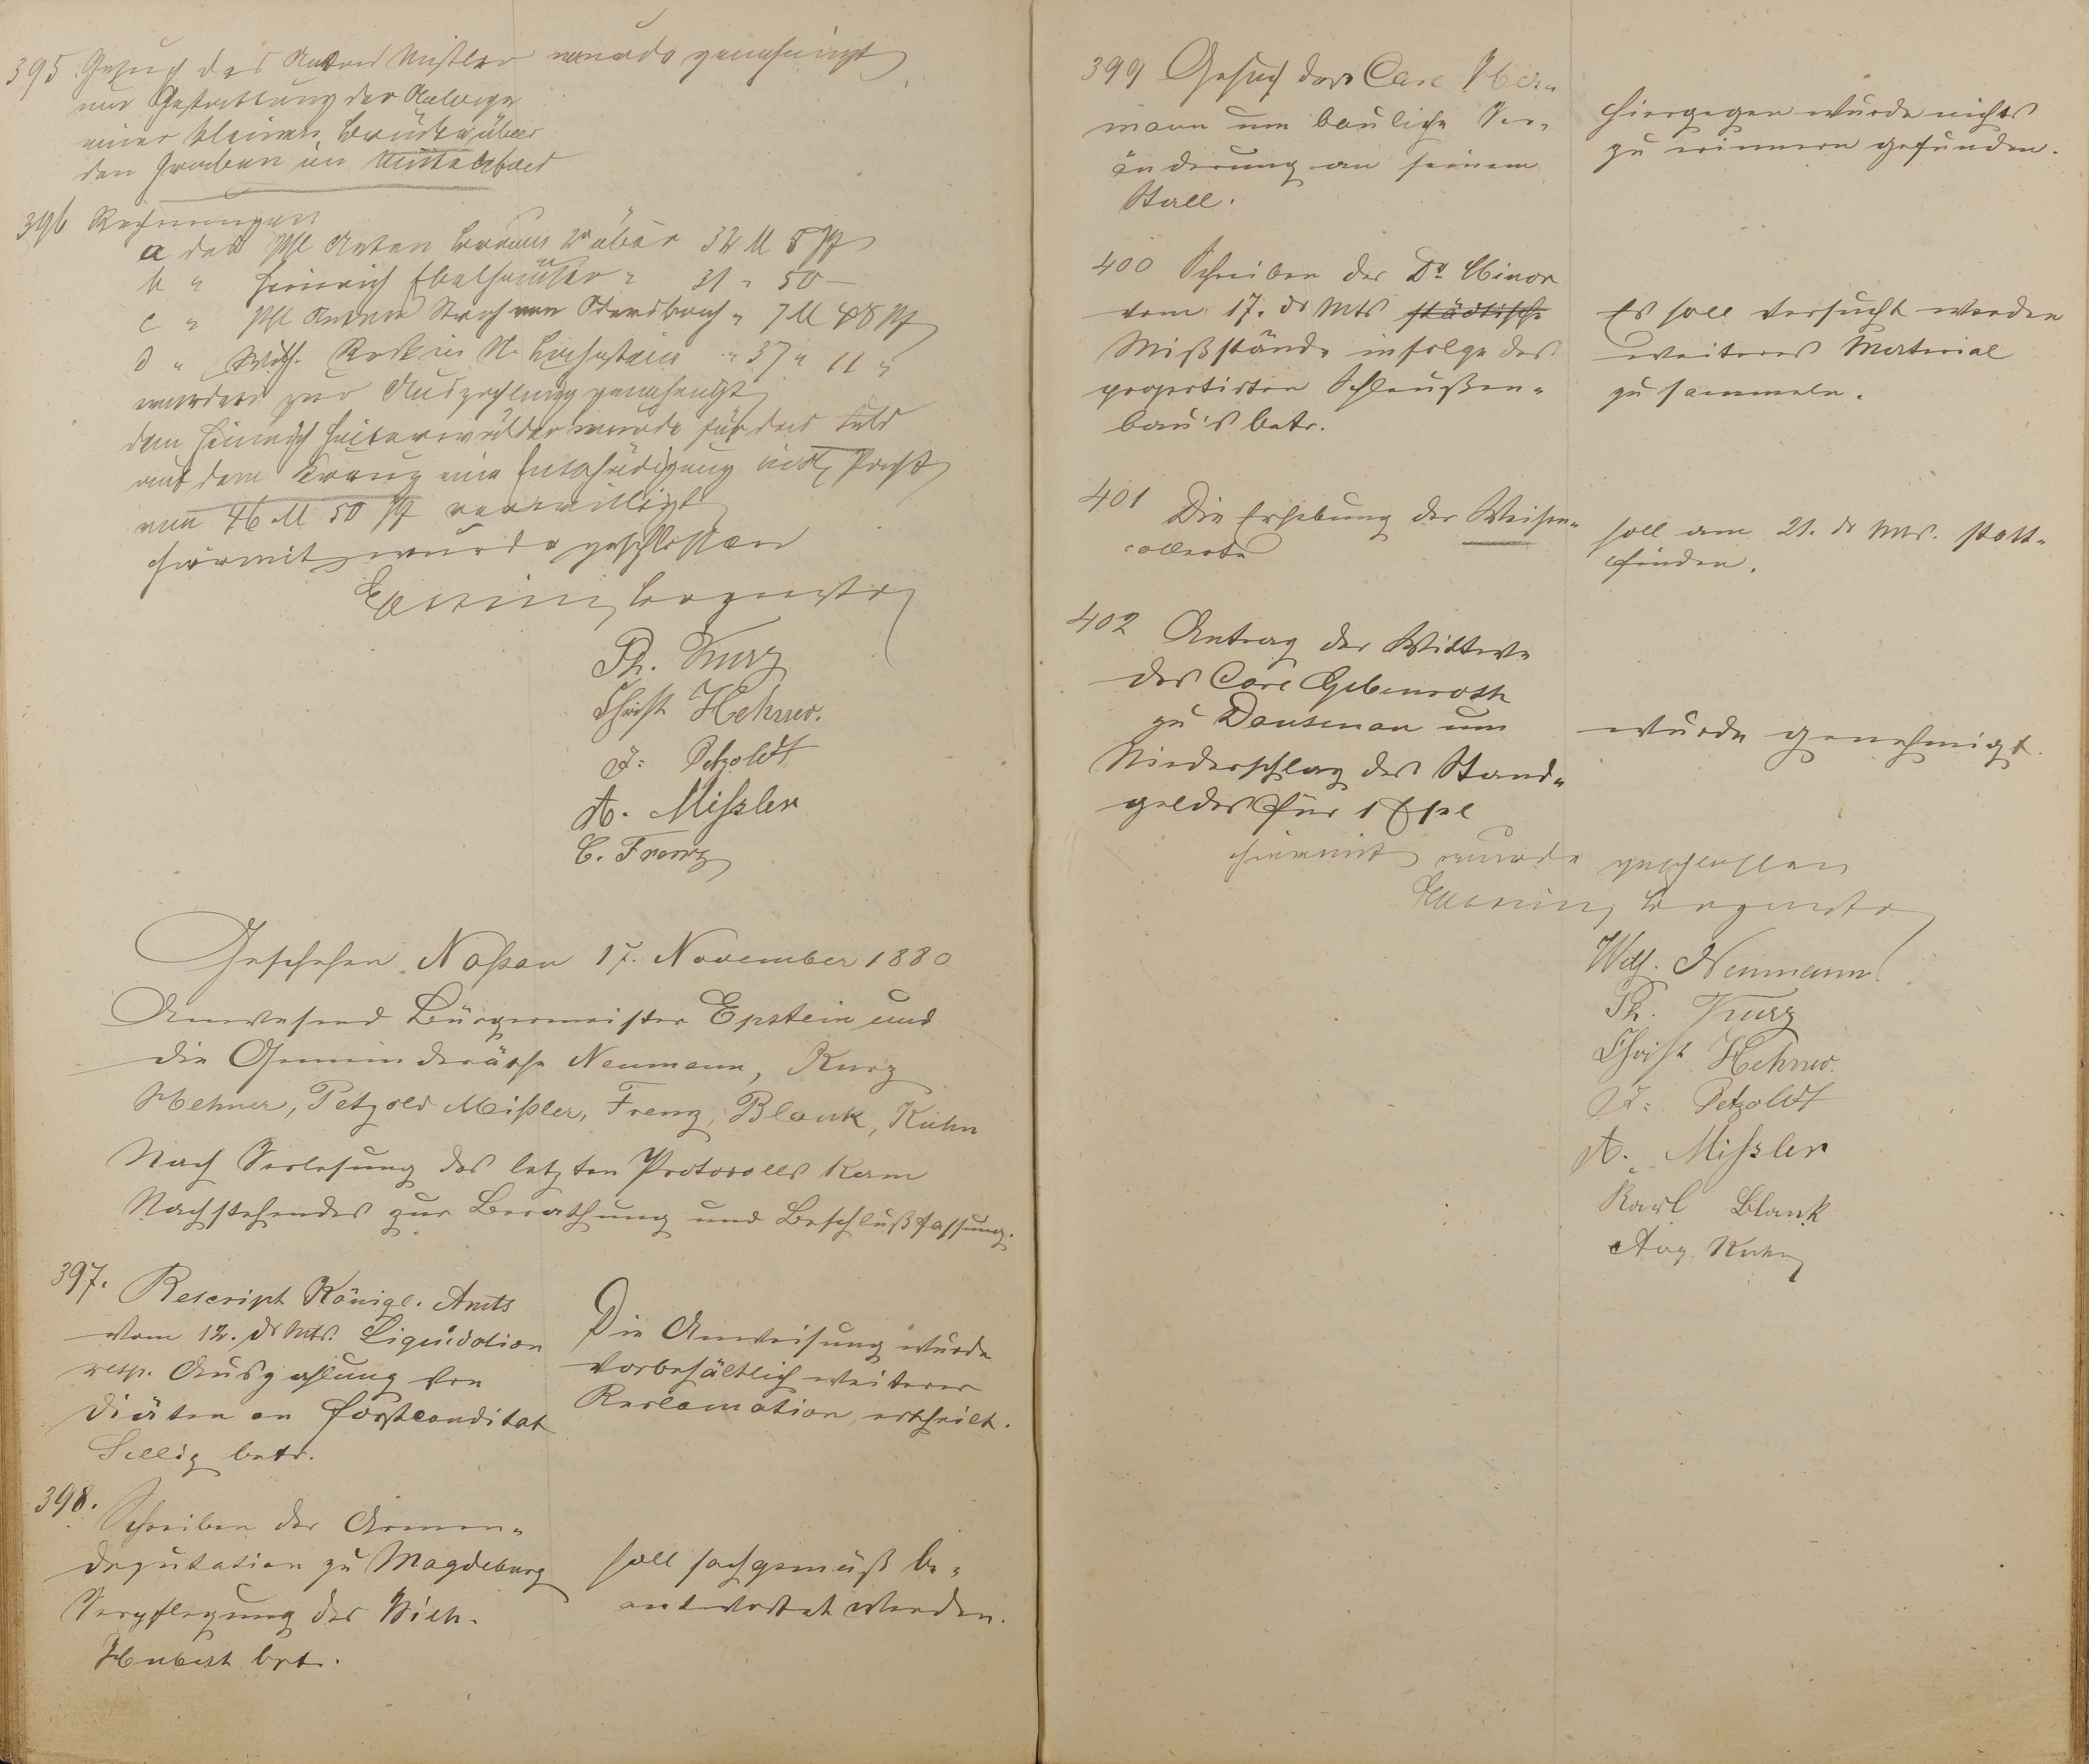 395. Gesuch des Anton Mißler wurde genehmigt
um Gestattung der Anlage
einer kleinen Brücke über
den Graben im Mittelpfad
396 Rechnungen
a des Phl Anton Braun 2r über 32 M 5 Pf
b " Heinrich Ebelhäuser " 31 " 50 —
c " Phl Anton Stroh von " 7 M 48 Pf
d " Wilh. in N. " 37 " 11 "
wurden zur Auszahlung genehmigt
dem Heinrich wurde für das Feld
auf dem eine Entschädigung incl. Pacht
von 46 M 50 Pf verwilligt
Hiermit wurde geschlossen
Epstein, Bürgermstr
Ph. Kurz
Christ Hehner.
F: Petzoldt
A. Mißler
C. Frenz
Geschehen Nassau 17. November 1880
Anwesend Bürgermeister Epstein und
die Gemeinderäthe Neumann, Kurz
Hehner, Petzold Mißler, Frenz, Blank, Kuhn
Nach Verlesung des letzten Protocolls kam
Nachstehendes zur Berathung und Beschlußfassung.
397.
Rescript Königl. Amts
vom 12. ds Mts. Liquidation
resp. Auszahlung von
Diäten an Forstcanditat
Sellig betr.
Die Anweisung wurde
vorbehältlich weiterer
Reclamation ertheilt.
398.
Schreiben der Armen-
deputation zu Magdeburg
Verpflegung des Wilh.
Hubert betr.
soll sachgemäß be-
antwortet werden.
399 Gesuch des Carl Her-
mann um bauliche Ver-
änderung an seinem
Stall.
Hiergegen wurde nichts
zu erinnern gefunden.
400 Schreiben des Dr. Minor
vom 17. ds Mts städtische
Mißstände infolge des
projectirten Schleußen-
bau's betr.
Es soll versucht werden
weiteres Material
zu sammeln.
401
Die Erhebung der Waisen-
collecte
soll am 21. ds Mts. statt-
finden.
402 Antrag der Wittwe
des Carl Gebenroth
zu Dausenau um
Niederschlag des Stand-
geldes für 1 Esel
wurde genehmigt.
Hiermit wurde geschlossen
Epstein, Bürgermstr
Wilh. Neumann.
Ph. Kurz
Christ Hehner.
F: Petzoldt
A. Mißler
Karl Blank
Aug Kuhn